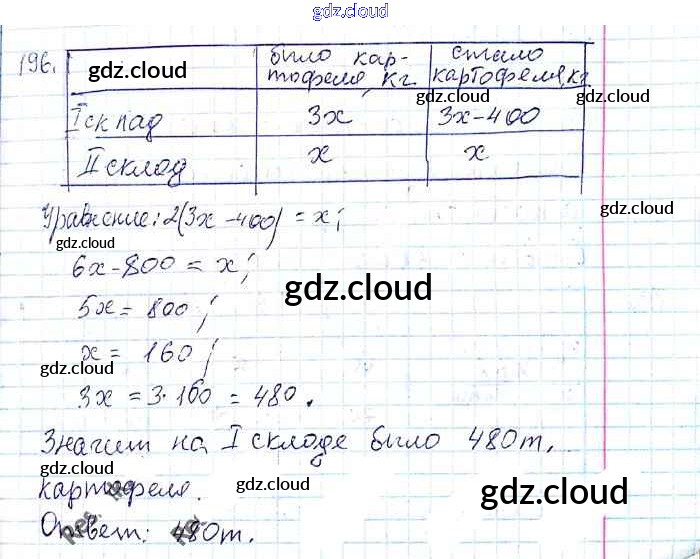 gdz.cloud
196.
gdz.cloud
было кар-
тофеля, кг
стало
картофеля, кг
gdz.cloud
gdz.cloud
I склад
3x
3x-400
II склад
x
x
Уравнение: 2(3x-400) = x;
gdz.cloud
gdz.cloud
6x-800 = x;
gdz.cloud
5x = 800;
x = 160;
gdz.cloud
gdz.cloud
3x = 3·160 = 480.
Значит на I складе было 480т.
gdz.cloud
картофеля.
gdz.cloud
gdz.cloud
Ответ: 480т.